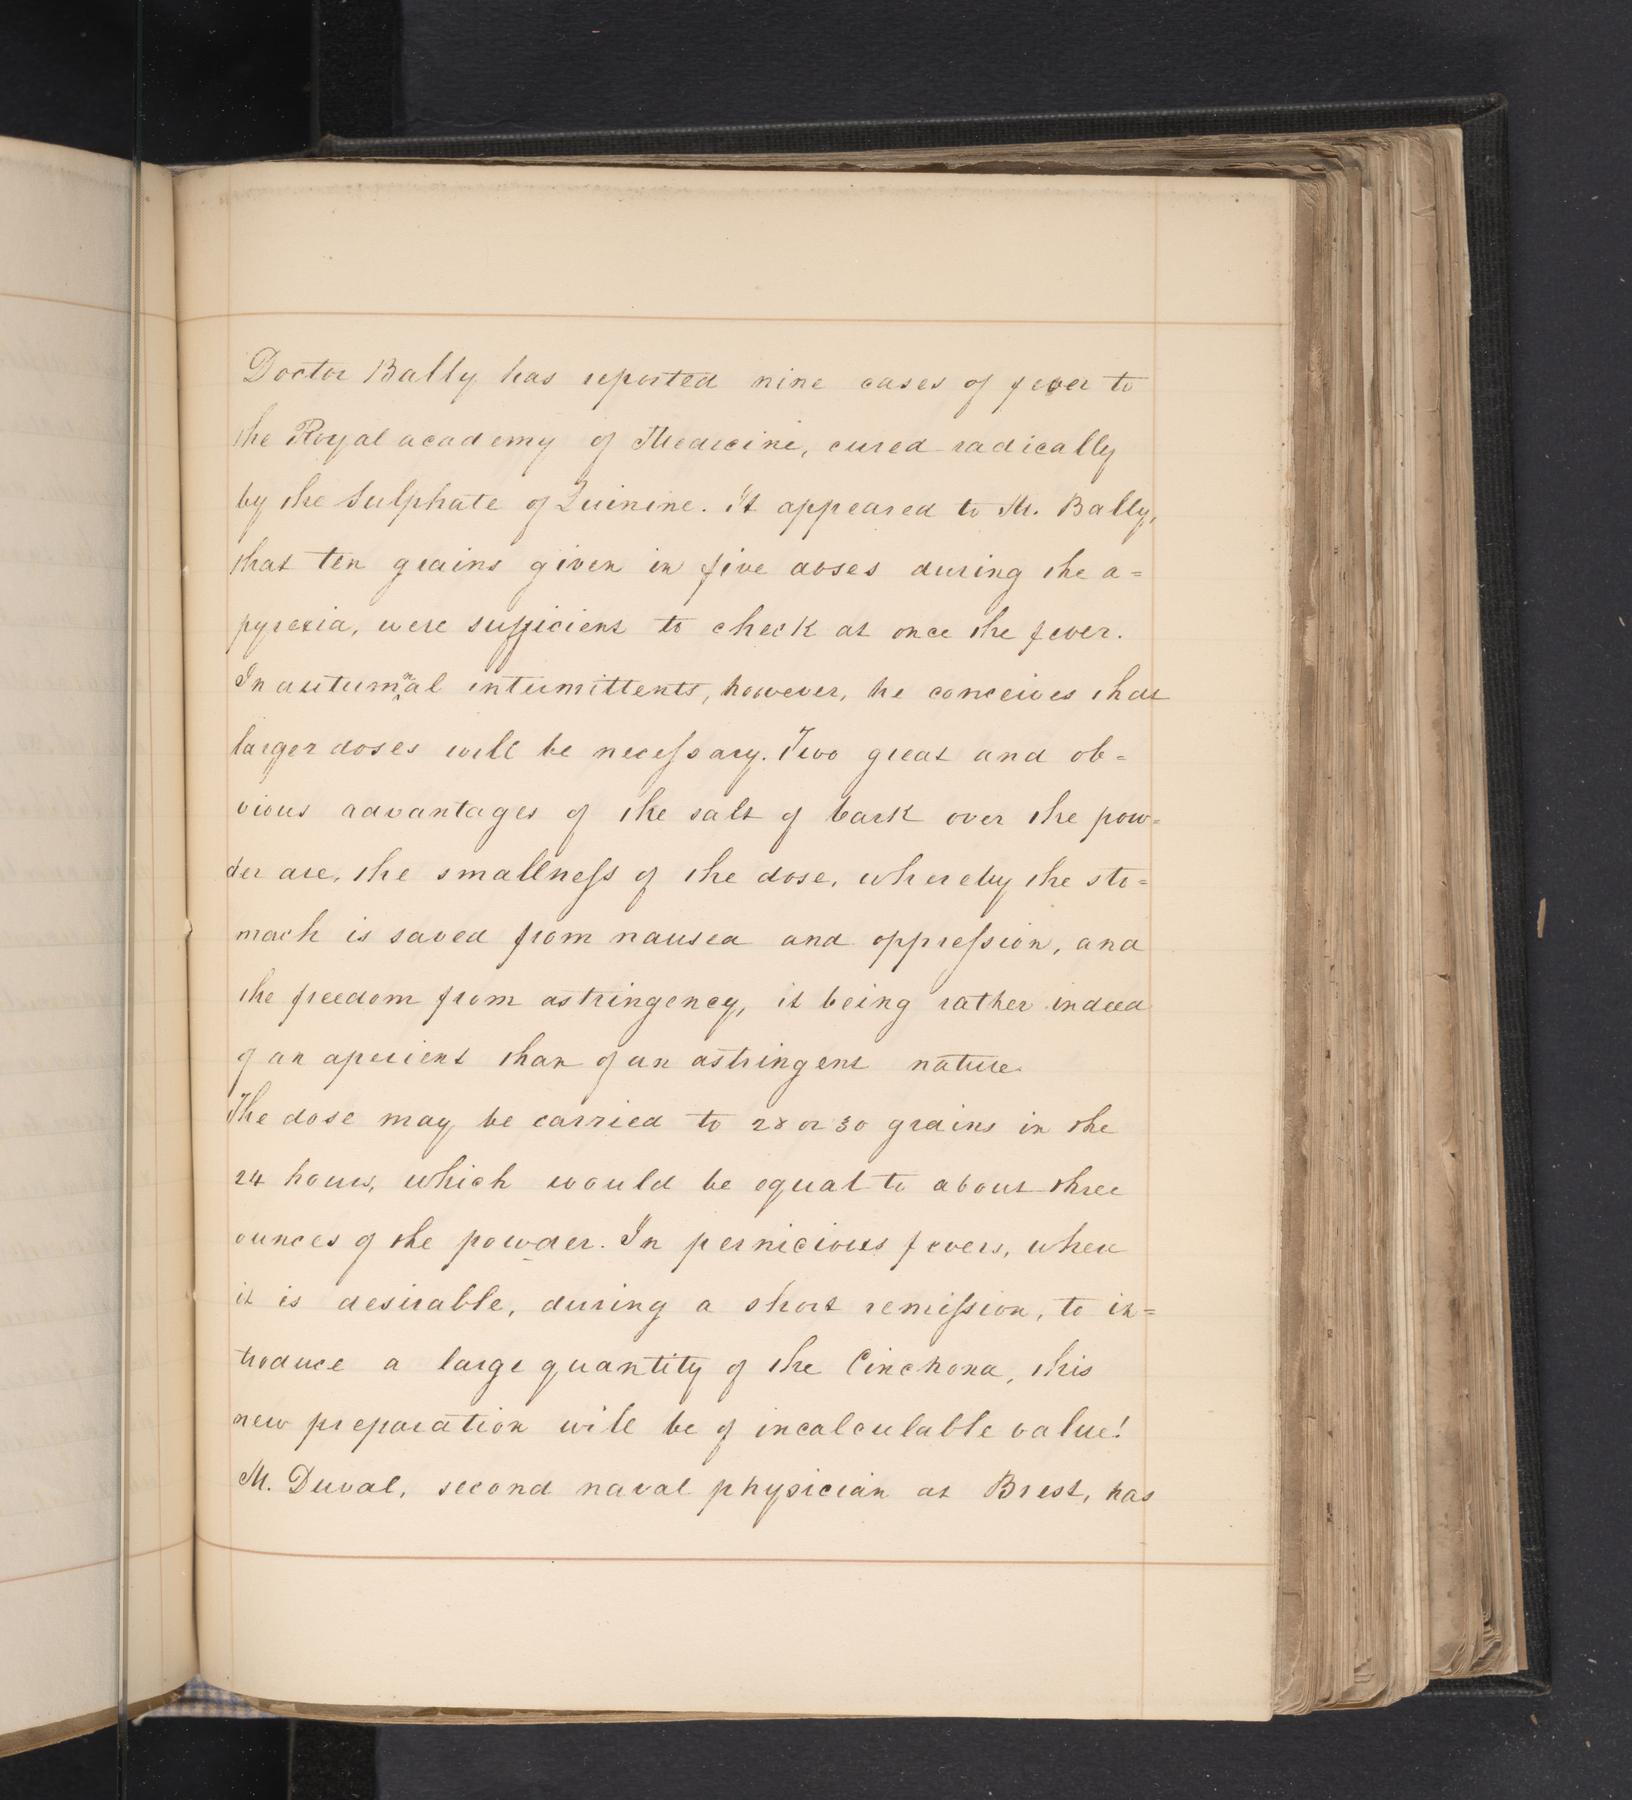 Doctor Bally has reported nine cases of fever to
the Royal academy of Medicine, cured radically
by the Sulphate of Quinine. It appeared to M. Bally,
that ten grains given in five doses during the a=
pyrexia, were sufficient to check at once the fever.
In autumnal intermittents, however, he conceives that
larger doses will be neceſsary. Two great and ob=
vious advantages of the salt of bark over the pow=
der are, the smallneſs of the dose, whereby the sto=
mach is saved from nausea and oppreſsion, and
the freedom from astringency, it being rather indeed
of an aperient than of an astringent nature.
The dose may be carried to 28 or 30 grains in the
24 hours, which would be equal to about three
ounces of the powder. In pernicious fevers, when
it is desirable, during a short remiſsion, to in=
troduce a large quantity of the Cinchona, this
new preparation will be of incalculable value!
M. Duval, second naval physician at Brest, has